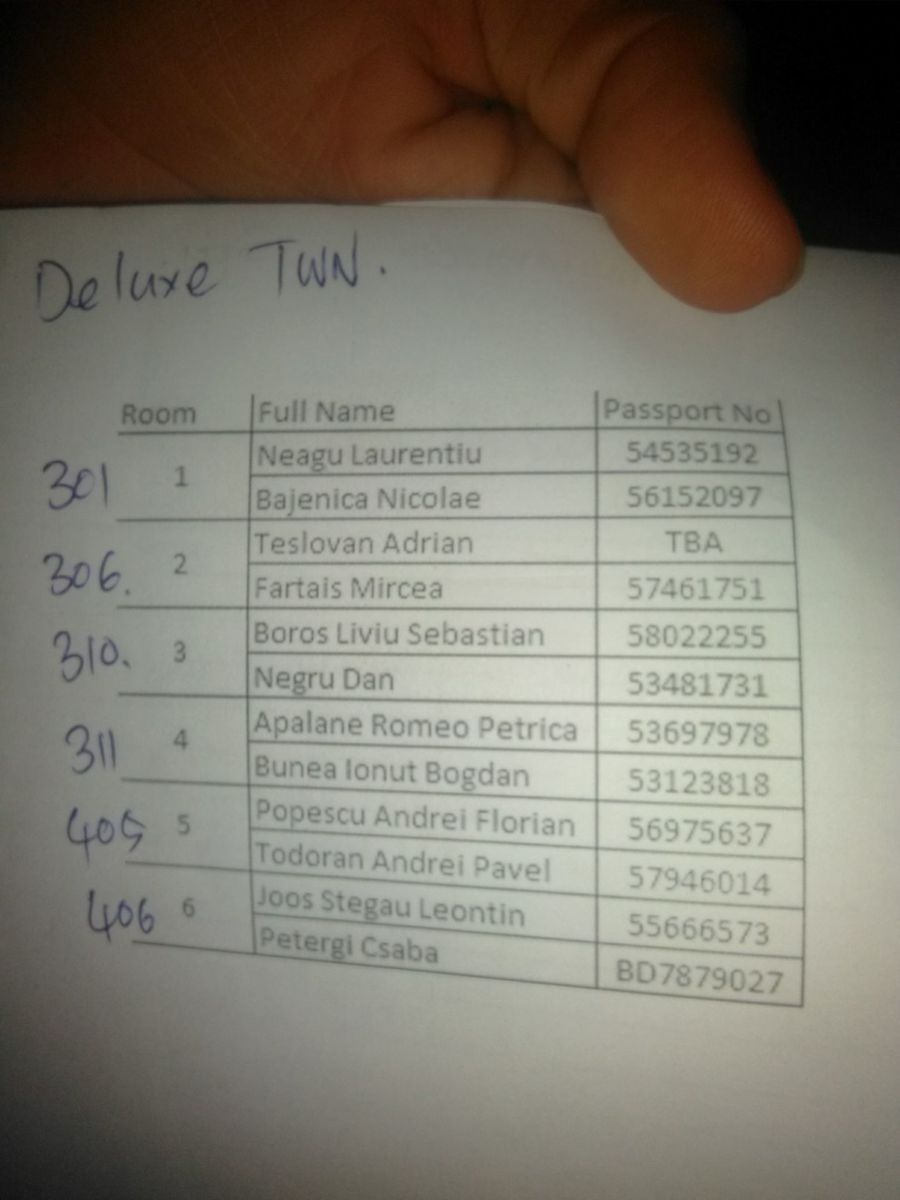 Deluxe TWN.
Room Full Name Passport No
301 1 Neagu Laurentiu 54535192
Bajenica Nicolae 56152097
306. 2 Teslovan Adrian TBA
Fartais Mircea 57461751
310. 3 Boros Liviu Sebastian 58022255
Negru Dan 53481731
311 4 Apalane Romeo Petrica 53697978
Bunea Ionut Bogdan 53123818
405 5 Popescu Andrei Florian 56975637
Todoran Andrei Pavel 57946014
406 6 Joos Stegau Leontin 55666573
Petergi Csaba BD7879027